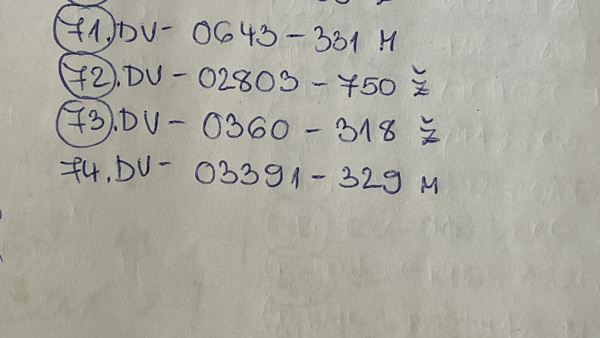 71. DV - 0643 - 331 M
72. DV - 02803 - 750 Ž
73. DV - 0360 - 318 Ž
74. DV - 03391 - 329 M